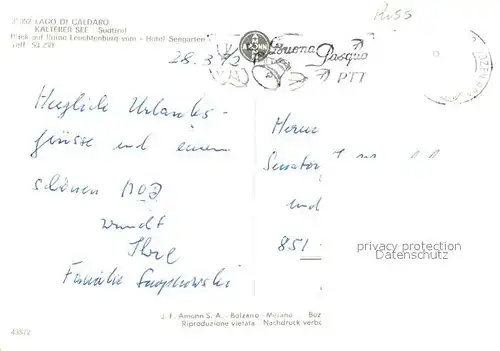 31 352 LAGO DI CALDARO
KALTERER SEE - Südtirol
Blick auf Ruine Leuchtenburg vom - Hotel Seegarten
Telf. 53 2
Russ
28.3.72
AMONN
Buona
Pasqua
PTT
Herzliche Urlaubs-
grüsse und einen
schönen
wünscht
Ihre
Familie
Herrn
Senator
und
851
privacy protection
Datenschutz
J. F. Amonn S. A. - Bolzano - Merano Boz
Riproduzione vietata - Nachdruck verbo
43372